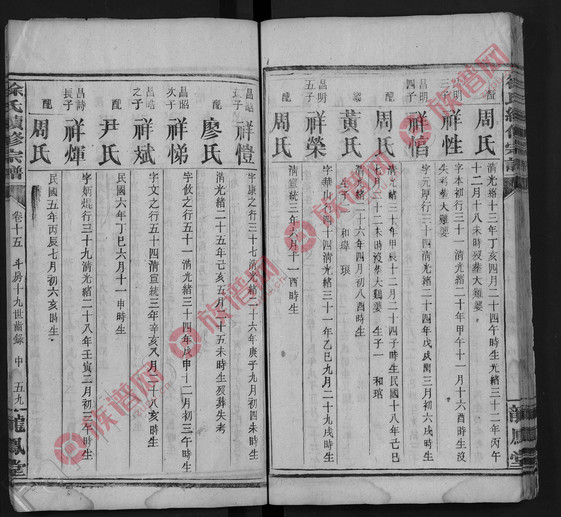 徐氏續修宗譜
龍鳳堂
周氏
清光緒十三年丁亥四月二十四午時生光緒三十二年丙午
十二月十八未時沒葬大雞婆
昌明
三子
祥性
字本初行三十一清光緒二十年甲午十一月十六戌時生
失考葬大雞婆
昌明
四子
祥信
字元厚行三十四清光緒二十四年戊戌閏三月初六戌時生
配
周氏
清光緒三十年甲辰十二月二十四子時生民國十八年己巳
七月二十二未時沒葬大鷄婆 生子一 和瑄
配
黄氏
清光緒二十六年四月初八酉時生
生子二 和璋 瑔
昌明
五子
祥榮
清光緒三十一年乙巳九月二十九未時生
配
周氏
清宣統三年八月十一酉時生
徐氏續修宗譜
卷十五
斗房十九世齒錄
中
五九
龍鳳堂
昌昭
長子
祥愷
字康之行三十七清光緒二十六年庚子九月初四未時生
配
廖氏
清光緒二十五年己亥五月二十五未時生歿葬失考
昌昭
次子
祥悌
字攸之行五十一清光緒三十四年戊申十二月初三午時生
昌皓
之子
祥斌
字文之行五十四清宣統三年辛亥又六月二十八亥時生
配
尹氏
民國六年丁巳六月十一申時生
昌詩
長子
祥煇
字炳焜行三十九清光緒二十八年壬寅二月初三午時生
配
周氏
民國五年丙辰七月初六亥時生
族譜网